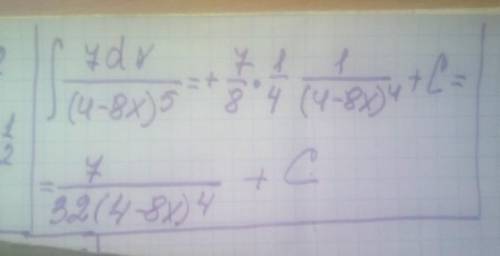 ∫ 7dx/(4-8x)^5 = + 7/8 · 1/4 1/(4-8x)^4 + C =
= 7/32(4-8x)^4 + C
1/2